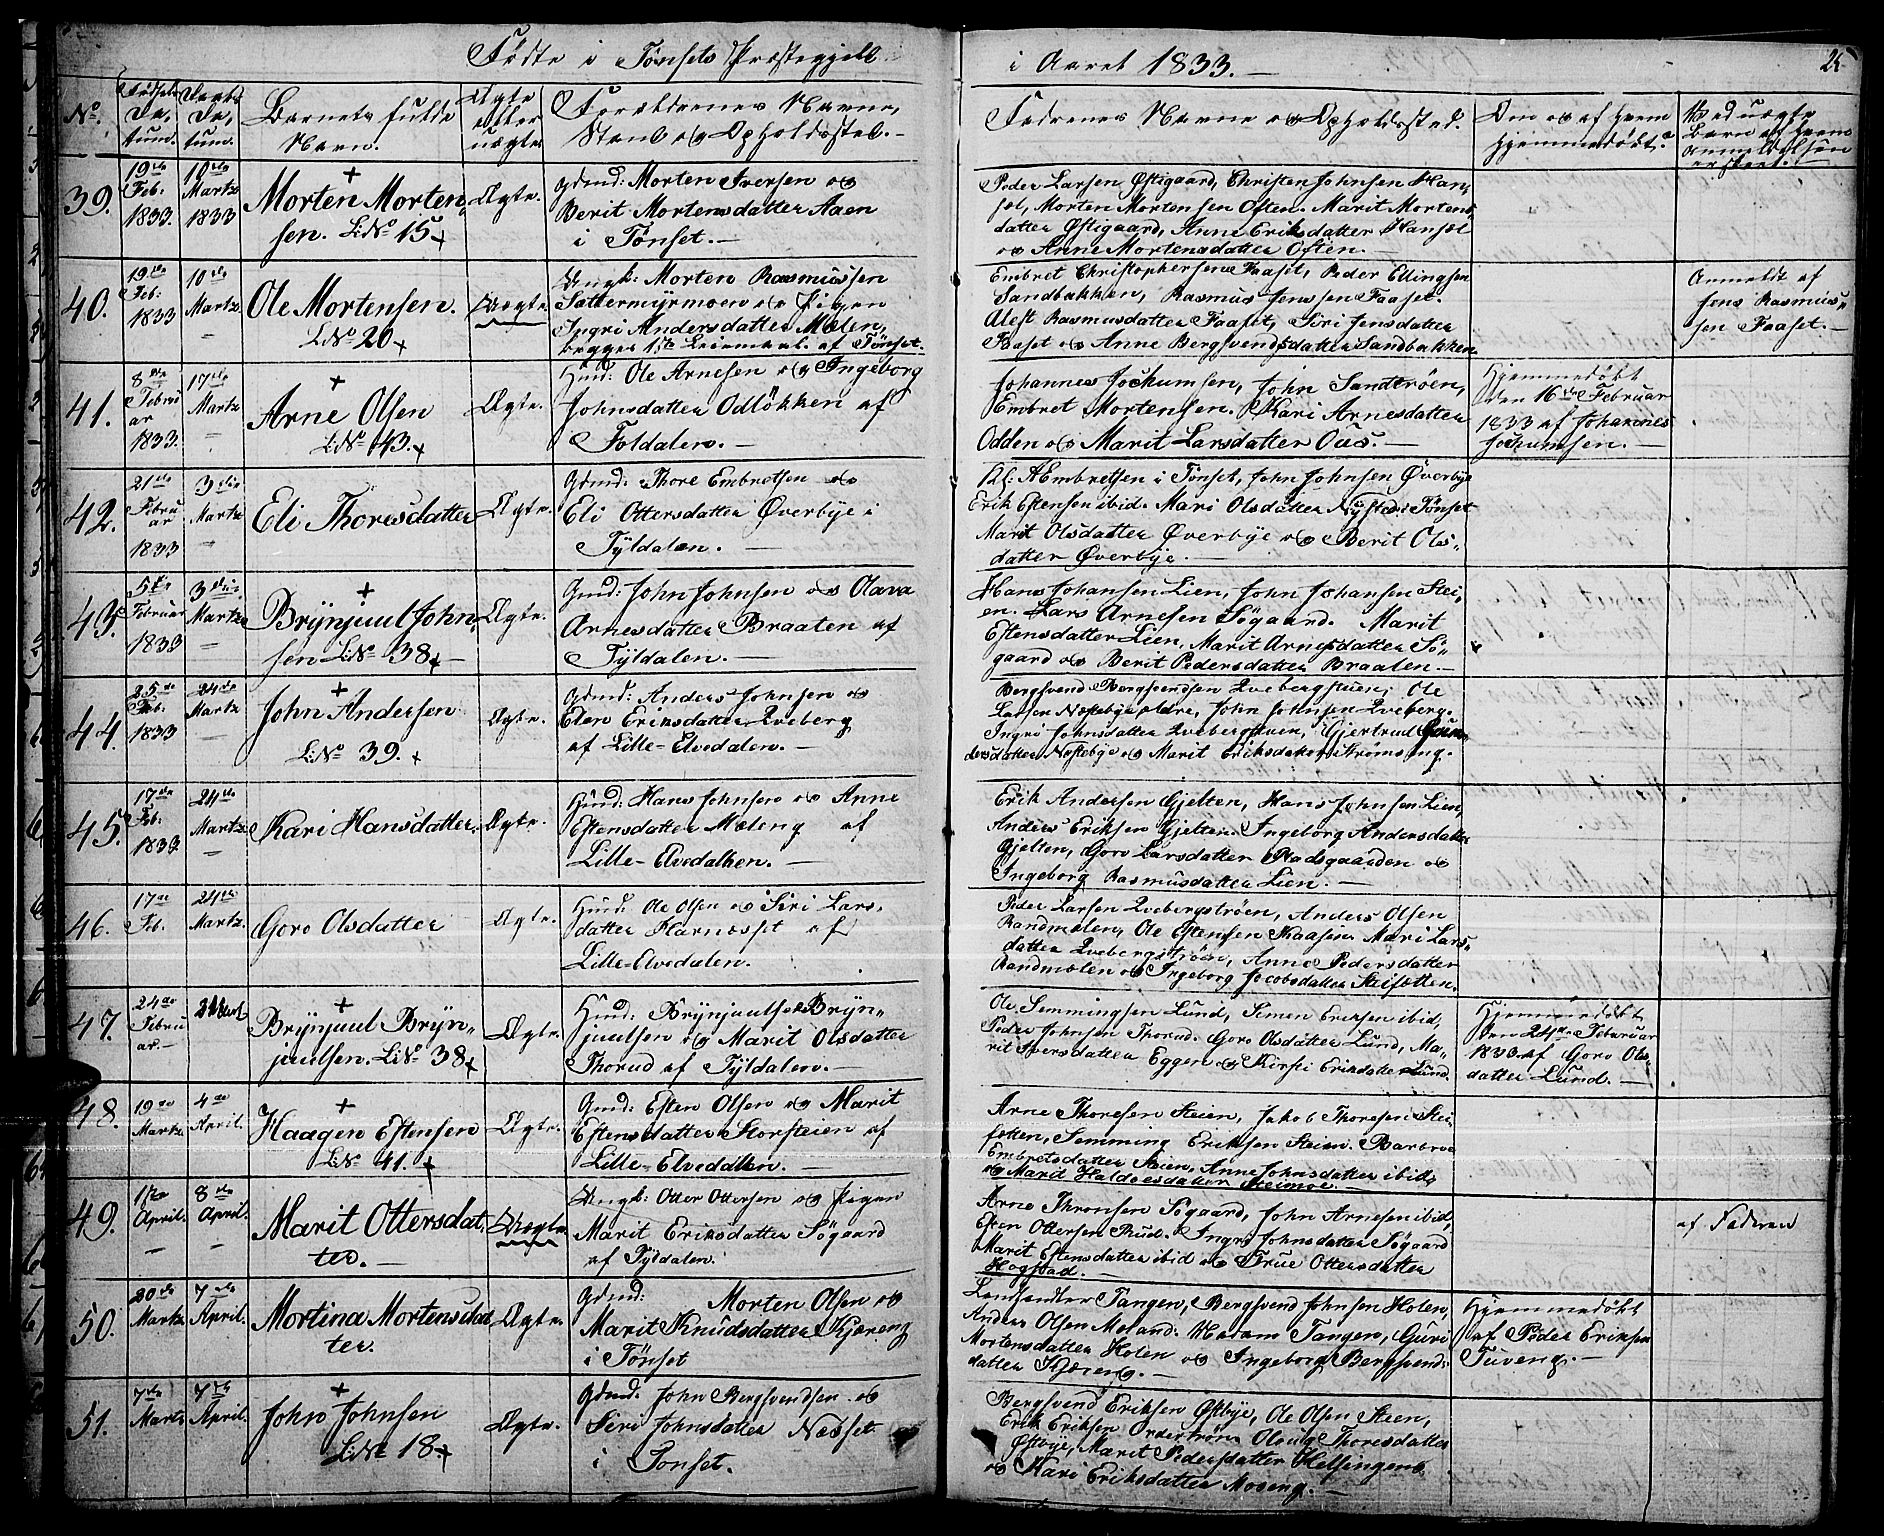 Födte i Tönsets Præstegjeld
i Aaret 1833.
25
No.
Födsels Da, tum.
Daabs Da, tum.
Barnets fulde Navn.
Ægte eller uægte
Forældrenes Navne, Stand og Opholdssted.
Fadrenes Navne og Opholdssted.
Om og af hvem hjemmedöbt.
Ved uægte Børn af hvem anmeldelsen
39.
19de Feb. 1833.
10de Martz 1833
Morten Morten, sen. L: No 15
Ægte.
Gdmd: Morten Iversen og
Berit Mortensdatter Aaen
i Tönset.
Peder Larsen Östgaard, Christen Johnsen Han,
sel, Morten Mortensen Osten. Marit Mortens,
datter Östgaard, Anne Eriksdatter Hansel
og Anne Mortensdatter Osten.
40.
19de Feb. 1833
10de Martz
Ole Mortensen.
L: No 20
Uægte
Ungk: Morten Rasmussen
Sattermyrmoen og Pigen
Ingri Andersdatter Mælen,
begges 1ste Leiermaal. af Tönset.
Embret Christophersen Faaset, Peder Ellingsen
Sandbakken, Rasmus Jenssen Faaset.
Alest Rasmusdatter Faaset, Siri Jensdatter
Faaset og Anne Bergsvendsdatter Sandbakken
Anmeldt af
Jens Rasmus,
sen Faaset.
41.
8de Februar 1833.
17de Martz
Arne Olsen
L: No 43.
Ægte.
Hmd: Ole Arnesen og Ingeborg
Johnsdatter Odlökken af
Foldalen.
Johannes Jochumsen, John Sandtröen,
Embret Mortensen. Kari Arnesdatter
Odden og Marit Larsdatter Oues.
Hjemmedöbt
den 16de Februar
1833 af Johannes
Jochumsen.
42.
21de Februar 1833
3die Martz
Eli Thoresdatter
Ægte.
Gdmd: Thore Embretsen og
Eli Ottersdatter Överbye i
Tyldalen.
Embretsen i Tönset, John Johnsen Överbye
Erik Estensen ibid. Mari Olsdatter Nystad i Tönset
Marit Olsdatter Överbye og Berit Ols,
datter Överbye.
43.
5te Februar 1833
3die Martz
Brynjuul John,
sen L: No 38
Ægte.
Gmd: John Johnsen og Olava
Arnesdatter Braaten af
Tyldalen.
Hans Johansen Lien, John Johansen Stei,
en. Lars Arnesen Sögaard. Marit
Estensdatter Lien, Marit Arnesdatter Sö,
gaard og Berit Pedersdatter Braaten.
44.
25de Feb. 1833
24de Martz
John Andersen
L: No 39.
Ægte.
Gdmd: Anders Johnsen og
Elen Eriksdatter Qveberg
af Lille-Elvedalen.
Bergsvend Bergsvendsen Qvebergstuen, Ole
Larsen Næstebye ældre, John Johnsen Qveberg.
Ingri Johnsdatter Qvebergstuen, Gjertrud
dersdatter Næstebye og Marit Eriksdatter Strömseng.
45.
17de Feb. 1833.
24de Martz
Kari Hansdatter.
Ægte.
Hmd: Hans Johnsen og Anne
Estensdatter Mæleng af
Lille-Elvedalen.
Erik Andersen Gjelten, Hans Johnsen Lien,
Anders Eriksen Gjelten. Ingeborg Andersdatter
Gjelten, Goro Larsdatter Stadsgaarden og
Ingeborg Rasmusdatter Lien.
46.
17de Feb.
24de Martz.
Goro Olsdatter
Ægte.
Hmd: Ole Olsen og Siri Lars,
datter Harnæsset af
Lille-Elvedalen.
Peder Larsen Qvebergströen, Anders Olsen
Randmælen, Ole Estensen Kaasen. Mari Lars,
datter Qvebergströen, Anne Pedersdatter
Randmælen og Ingeborg Jacobsdatter Steisötten.
47.
24de Februar.
Brynjuul Bryn,
juulsen. L: No 38
Ægte.
Hmd: Brynjuulse Bryn,
juulsen og Marit Olsdatter
Thorud af Tyldalen.
Ole Semmingsen Lund, Simen Eriksen ibid,
Peder Johnsen Thorud. Goro Olsdatter Lund, Ma,
rit Iversdatter Eggen og Kirsti Eriksdatter Lund.
Hjemmedöbt
den 24de Februar
1833. af Goro Ols,
datter Lund.
48.
19de Martz
4de April.
Haagen Estensen
L: No 41.
Ægte.
Gmd: Esten Olsen og Marit
Estensdatter Storsteien af
Lille-Elvedalen.
Arne Thoresen Steien, Jakob Thoresen Stei,
sötten, Semming Eriksen Steien. Barbroe
Embretsdatter Steien, Anne Johnsdatter ibid,
og Marit Haldoesdatter Steimoe.
49.
1ste April.
8de April.
Marit Ottersdat,
ter.
Uægte.
Ungk: Otter Ottersen og Pigen
Marit Eriksdatter Sögaard
af Tyldalen.
Arne Thronsen Sögaard, John Arnesen ibid,
Esten Ottersen Ruud. Ingri Johnsdatter Sögaard
Marit Estensdatter ibid og True Ottersdatter
Hogstad.
af Faderen
50.
20de Martz
7de April.
Mortina Mortensdat
ter.
Ægte.
Gdmd: Morten Olsen og
Marit Knudsdatter Kjæreng
i Tönset
Landhandler Tangen, Bergsvend Johnsen Holen,
Anders Olsen Moland. Madam Tangen, Guri
Mortensdatter Holen og Ingeborg Bergsvends
datter Kjæreng.
Hjemmedöbt
af Peder Eriksen
Tuveng.
51.
7de Martz
7de April.
John Johnsen
L: No 18.
Ægte.
Gdmd: John Bergsvendsen og
Siri Johnsdatter Næsset
i Tönset.
Bergsvend Eriksen Östbye, Ole Olsen Steen,
Erik Eriksen Ordertröen. Oloug Thoresdatter
Östbye, Marit Pedersdatter Helsingeng
og Kari Eriksdatter Moseng.